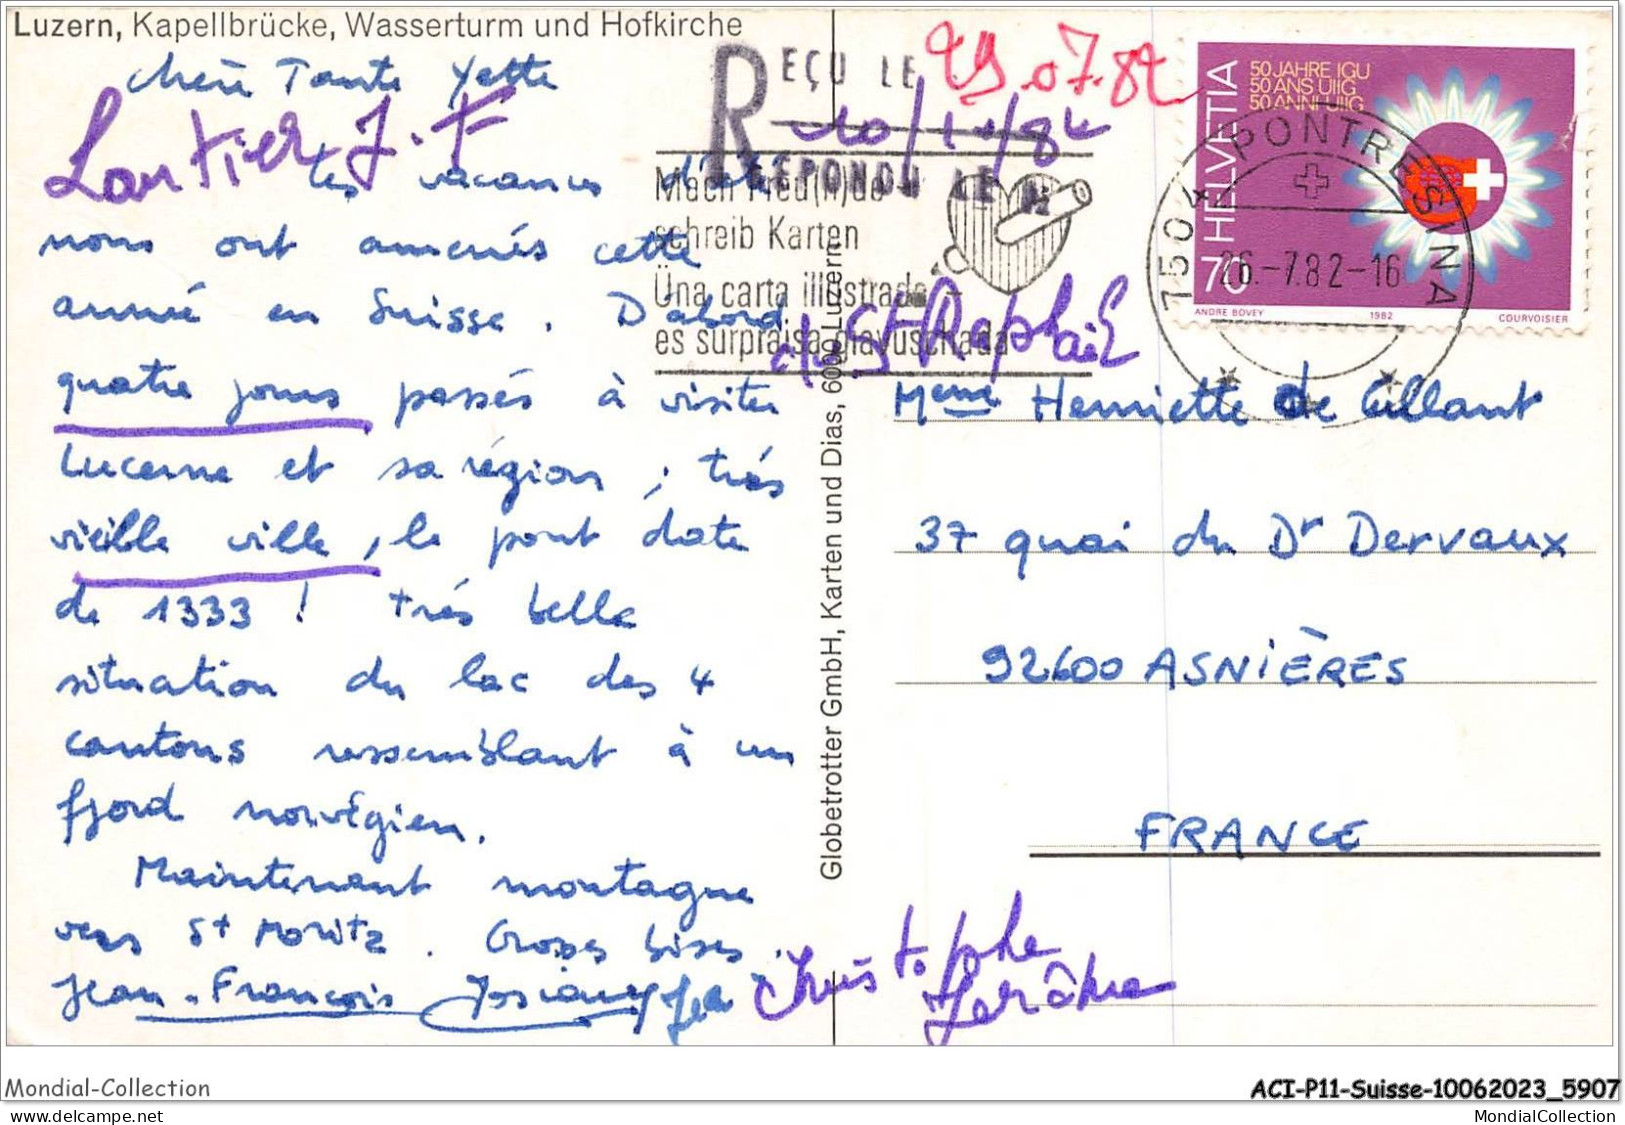 Luzern, Kapellbrücke, Wasserturm und Hofkirche
chère Tante Yette
Lartier J.F
REÇU LE 29.07.82
10/11/82
RÉPONDU LE
Les vacances d'été
nous ont amenés cette
année en Suisse. D'abord
quatre jours passés à visiter
Lucerne et sa région ; très
vieille ville, le pont date
de 1333 ! très belle
situation du lac des 4
cantons ressemblant à un
fjord norvégien.
Maintenant montagne
vers St Moritz. Grosses bises.
Jean-François Josiane
Christophe
Jérôme
Mach Freu(n)de
schreib Karten
Üna carta illustrada –
es surpraisa giavüschada
St Raphaël
Globetrotter GmbH, Karten und Dias, 6000 Luzern
50 JAHRE IGU
50 ANS UIIG
50 ANNI UIIG
HELVETIA
70
ANDRE BOVEY 1982 COURVOISIER
7504 PONTRESINA
26.-7.82-16
Meme Henriette de Cillant
37 quai du Dr Dervaux
92600 ASNIÈRES
FRANCE
Mondial-Collection
ACI-P11-Suisse-10062023_5907
MondialCollection.eu@gmail.com
MondialCollection